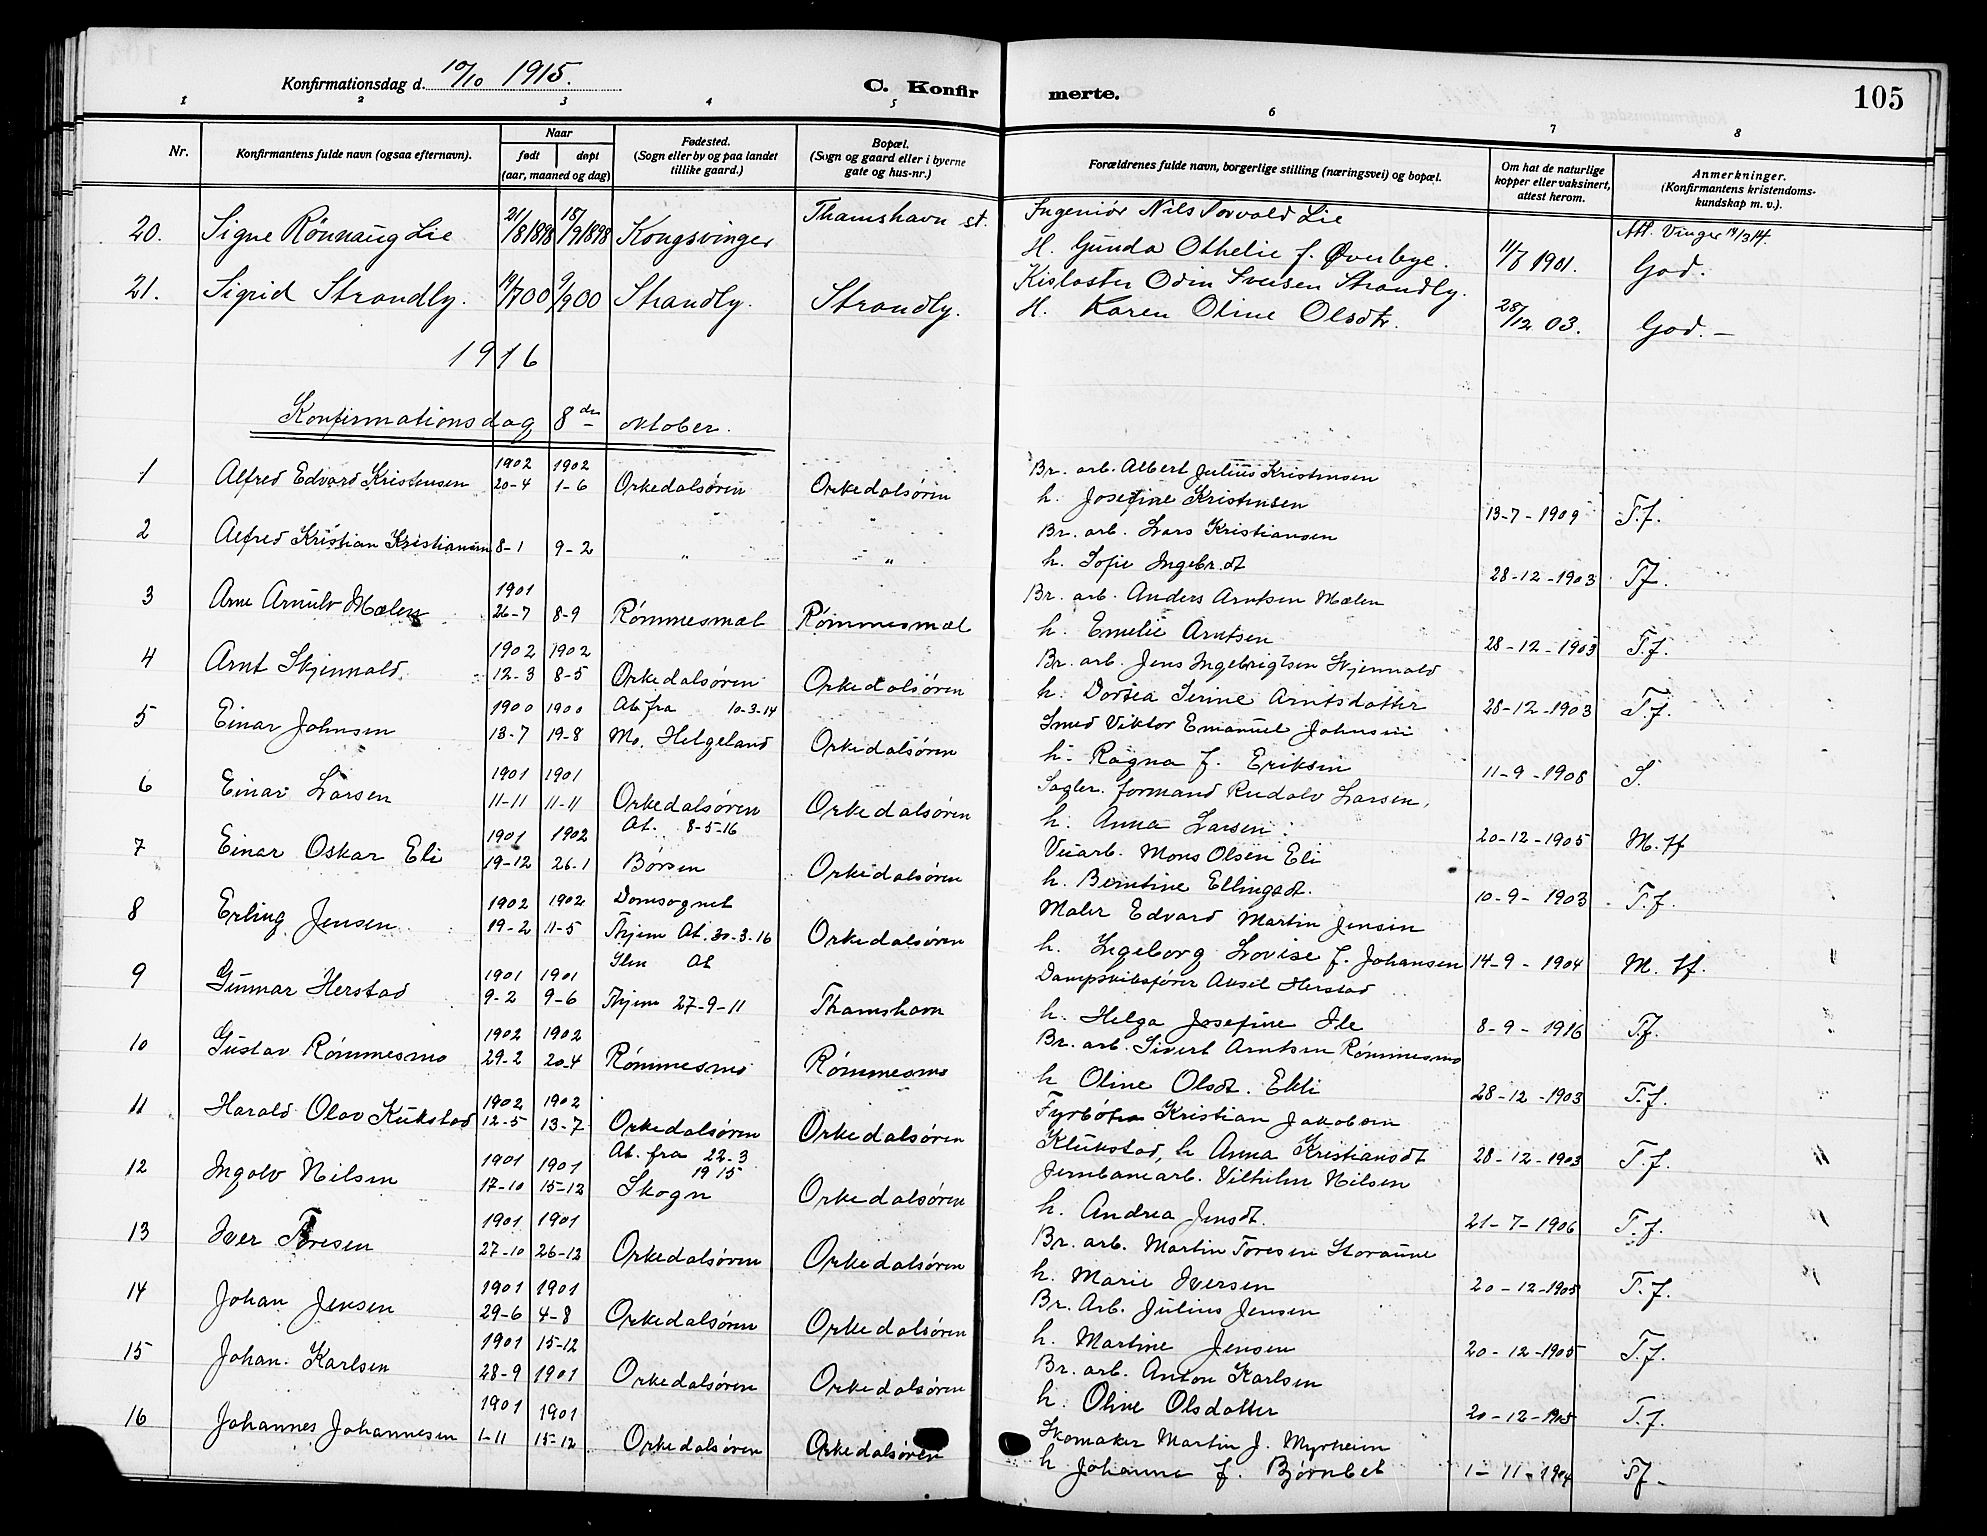 Konfirmationsdag d. 10/10 1915. C. Konfirmerte. 105
1 2 3 4 5 6 7 8
Nr. Konfirmantens fulde navn (ogsaa efternavn). Naar født døpt (aar, maaned og dag) Fødested. (Sogn eller by og paa landet tillike gaard.) Bopæl. (Sogn og gaard eller i byerne gate og hus-nr.) Forældrenes fulde navn, borgerlige stilling (næringsvei) og bopæl. Om hat de naturlige kopper eller vaksinert, attest herom. Anmerkninger. (Konfirmantens kristendomskundskap m. v.).
20. Signe Rönnaug Lie 21/8 1898 18/9 1898 Kongsvinger Thamshavn st. Ingeniør Nils Torvald Lie Att. Vinger 19/3 14.
H. Gunda Othelie f. Øverbye. 11/8 1901. God.
21. Sigrid Strandly. 19/7 00 9/9 00 Strandly. Strandly. Odin Sversen Strandly.
H. Karen Oline Olsdtr. 28/12 03. God. –
1916
Konfirmationsdag 8de oktober.
1 Alfred Edvard Kristensen 1902 20-4 1902 1-6 Orkedalsören Orkedalsören Br. arb. Albert Julius Kristensen
h. Josefine Kristensen 13-7-1909 T.f.
2 Alfred Kristian Kristiansen 8-1 9-2 " " Br. arb. Lars Kristiansen
h. Sofie Ingebr.dt 28-12-1903 Tf.
3 Arne Arnulv Mælen 1901 26-7 8-9 Römmesmæl Römmesmæl Br. arb. Anders Arntsen Mælen
h. Emelie Arntsen 28-12-1903 T.f.
4 Arnt Skjennald. 1902 12-3 1902 8-5 Orkedalsören Orkedalsören Br. arb. Jens Ingebrigtsen Skjennald
h. Dorsea Serine Arntsdatter 28-12-1903 T.f.
5 Einar Johnsen 1900 13-7 1900 19-8 At fra 10-3-14 Mo, Helgeland Orkedalsören Smed Viktor Emanuel Johnsen
h. Ragna f. Eriksen 11-9-1908 S.
6 Einar Larsen 1901 11-11 1901 11-11 Orkedalsören Orkedalsören Sagbr. formand Rudolv Larsen,
h. Anna Larsen. 20-12-1905 M.tf
7 Einar Oskar Eli 1901 19-12 1902 26-1 At. 8-5-16 Børsen Orkedalsören Veiarb. Mons Olsen Eli
h. Berntine Ellingsdt. 10-9-1903 T.f.
8 Erling Jensen 1902 19-2 1902 11-5 Domsognet Thjem At. 30-3-16 Orkedalsören Maler Edvard Martin Jensen
h. Ingeborg Lovise f. Johansen 14-9-1904 M.tf.
9 Gunnar Herstad 1901 9-2 1901 9-6 Ilen At Thjem 27-9-11 Thamshavn Dampskibsfører Aksel Herstad
h. Helga Josefine Ile 8-9-1916 Tf.
10 Gustav Römmesmo 1902 29-2 1902 20-4 Römmesmo Römmesmo Br. arb. Sivert Arntsen Römmesmo
h Oline Olsdt. Ekli 28-12-1903 T.f.
11 Harald Olav Kukstad 1902 12-5 1902 13-7 Orkedalsören Orkedalsören Fyrböter Kristian Jakobsen
Klukstad, h Anna Kristiansdt 28-12-1903 T.f.
12 Ingolv Nilsen 1901 17-10 1901 15-12 At. fra 22-3 1915 Skogn Orkedalsören Jernbanearb. Vilhelm Nilsen
h. Andrea Jensdt. 21-7-1906 T.f.
13 Iver Toresen 1901 27-10 1901 26-12 Orkedalsören Orkedalsören Br. arb. Martin Toresen Storaune
h. Marie Iversen 20-12-1905 T.f.
14 Johan Jensen 1901 29-6 1901 4-8 Orkedalsören Orkedalsören Br. Arb. Julius Jensen
h. Martine Jensen 20-12-1905 T.f.
15 Johan. Karlsen 1901 28-9 15-12 1901 Orkedalsören Orkedalsören Br. arb. Anton Karlsen
h. Oline Olsdatter 20-12-1905 T.f.
16 Johannes Johannesen 1901 1-11 1901 15-12 Orkedalsören Orkedalsören Skomaker Martin J. Myrheim
h Johanna f. Bjørnbet 1-11-1904 Tf –